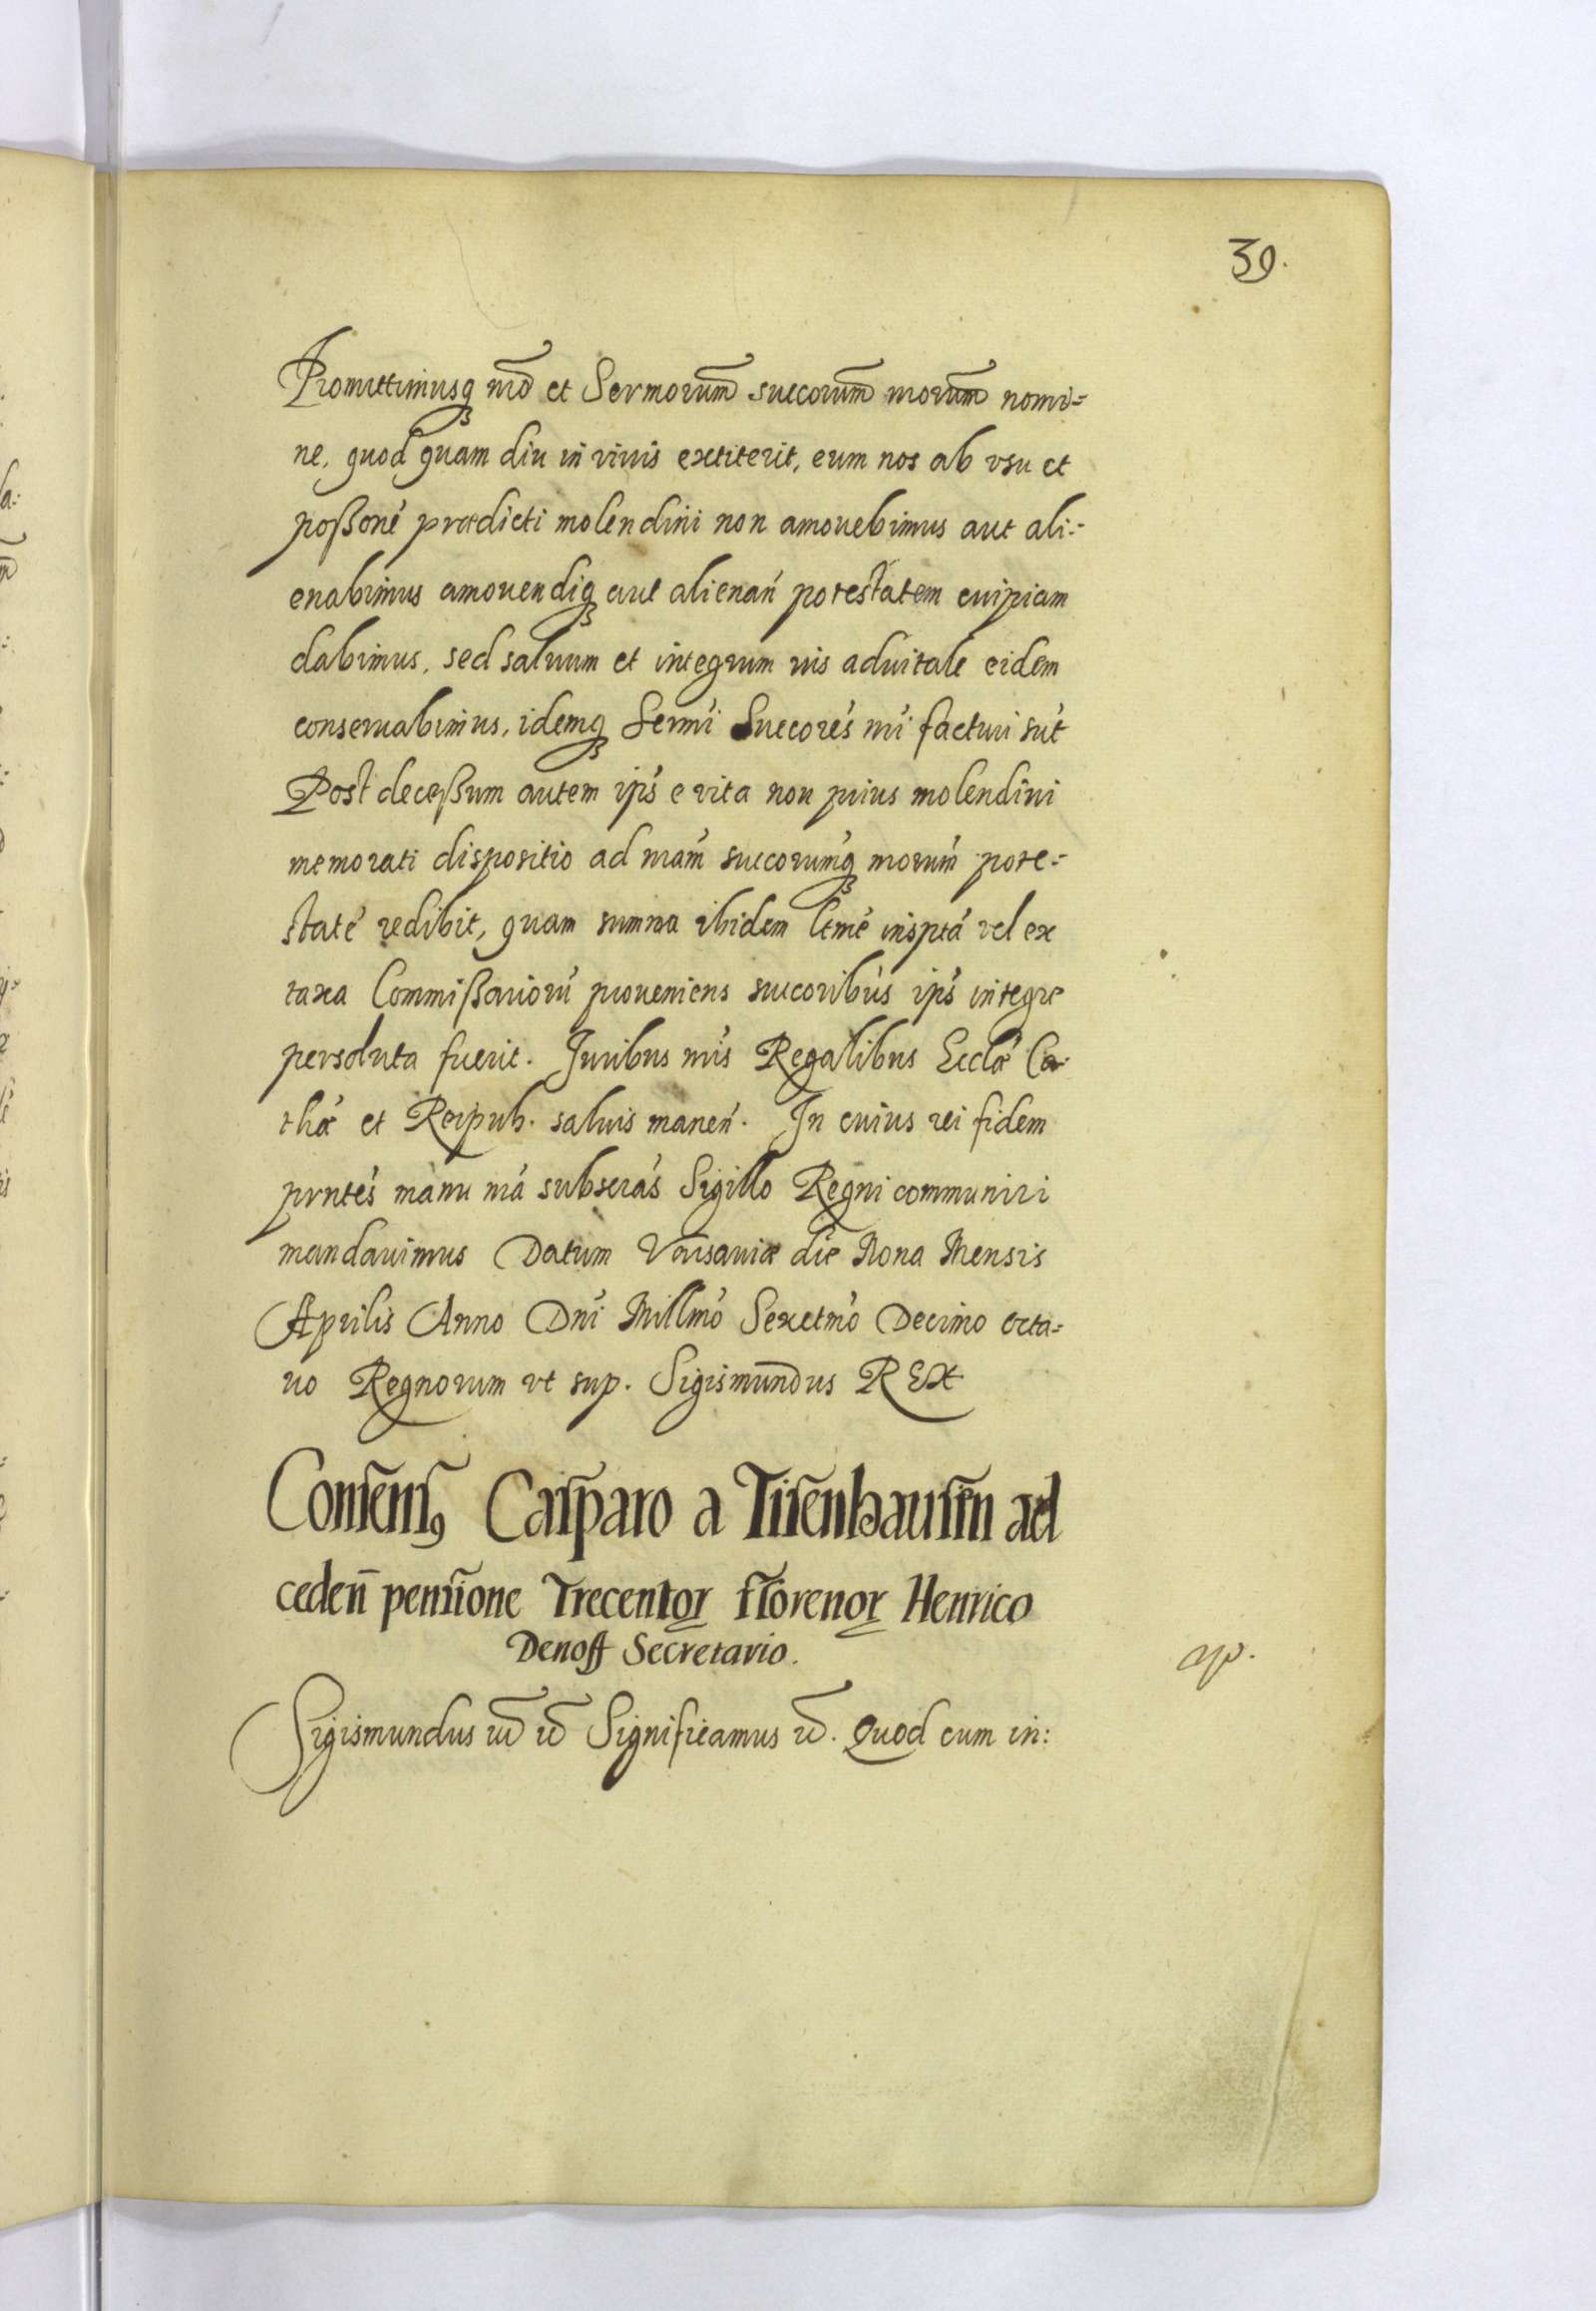 39.
Promittimusq₃ nrõ et Sermorum̃ succorum̃ nrorum̃ nomi=
ne, quod quam diu in viuis extiterit, eum nos ab vsu et
poßone prædicti molendini non amouebimus aut ali=
enabimus amouendiq₃ aut alienan̄ potestatem cuipiam
dabimus, sed saluum et integrum ius aduitale eidem
conseruabimus, idemq₃ Sermi Succores nri facturi sut
Post deceßum autem ips e vita non prius molendini
memorati dispositio ad nram succorumq₃ nrorum pote=
state redibit, quam summa ibidem ltme inspta vel ex
taxa Commißariorũ proueniens succoribus ips integre
persoluta fuerit. Juribus nris Regalibus Ecclæ Ca-
thæ et Reipub. saluis manen̄. In cuius rei fidem
prntes manu nra subscras Sigillo Regni communiri
mandauimus Datum Varsauiæ die Nona Mensis
Aprilis Anno Dni Millmo Sexctmo Decimo octa=
uo Regnorum vt sup. Sigismundus REX
Consens9 Casparo a Tisenhausen ad
ceden̄ pensione Trecentor florenor Henrico
Denoff Secretario.
ap.
Sigismundus etc̃ etc̃ Significamus etc̃. Quod cum in: